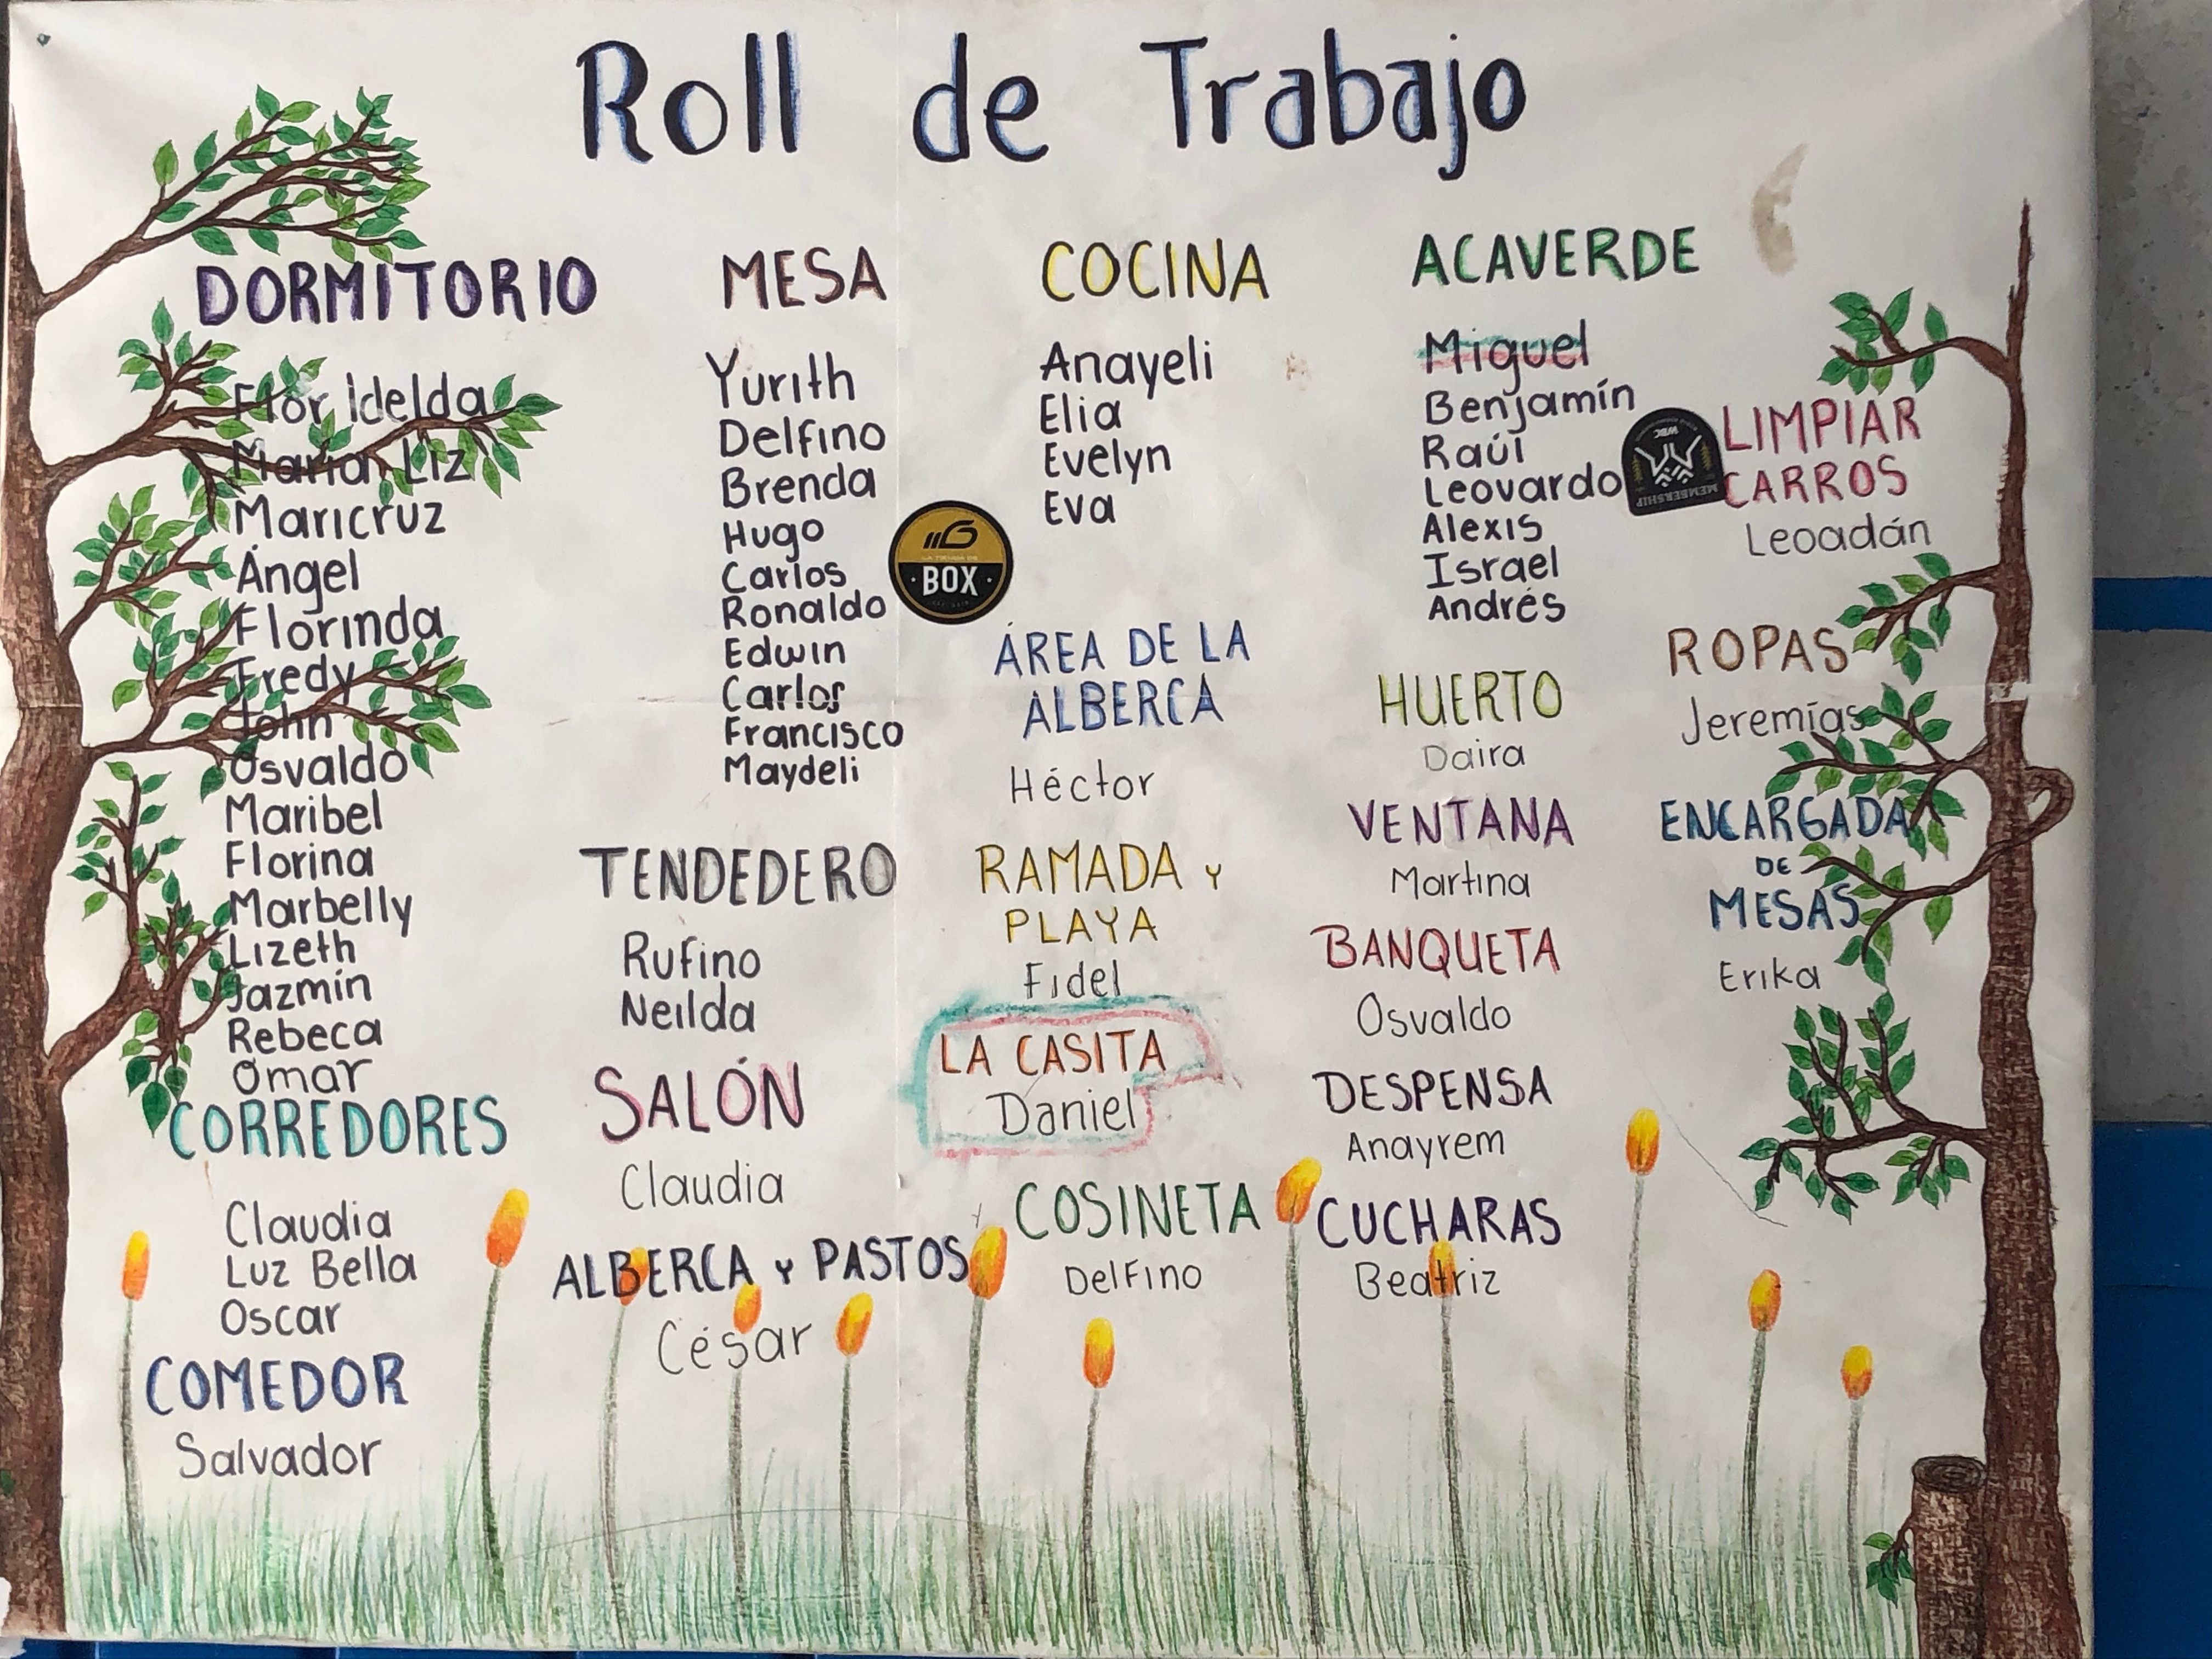 Roll de Trabajo
DORMITORIO
Flor Idelda
Marian Liz
Maricruz
Ángel
Florinda
Fredy
John
Osvaldo
Maribel
Florina
Marbelly
Lizeth
Jazmín
Rebeca
Omar
CORREDORES
Claudia
Luz Bella
Oscar
COMEDOR
Salvador
MESA
Yurith
Delfino
Brenda
Hugo
Carlos
Ronaldo
Edwin
Carlos
Francisco
Maydeli
TENDEDERO
Rufino
Neilda
SALÓN
Claudia
ALBERCA Y PASTOS
César
COCINA
Anayeli
Elia
Evelyn
Eva
BOX
ÁREA DE LA
ALBERCA
Héctor
RAMADA Y
PLAYA
Fidel
LA CASITA
Daniel
COSINETA
Delfino
ACAVERDE
Miguel
Benjamín
Raúl
Leovardo
Alexis
Israel
Andrés
HUERTO
Daira
VENTANA
Martina
BANQUETA
Osvaldo
DESPENSA
Anayrem
CUCHARAS
Beatriz
WBC
MEMBERSHIP
LIMPIAR
CARROS
Leoadán
ROPAS
Jeremías
ENCARGADA
DE
MESAS
Erika